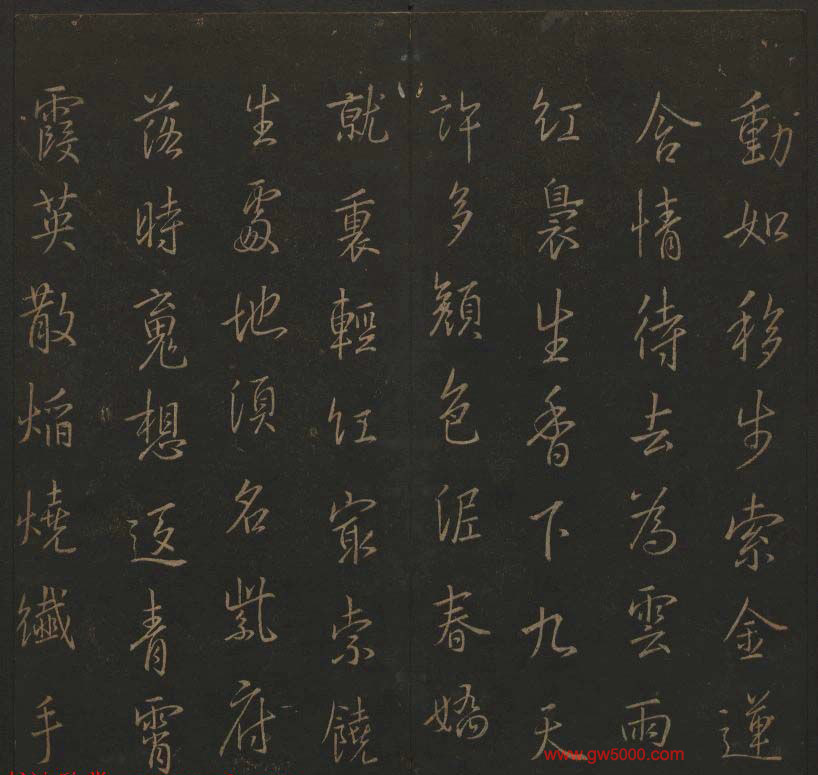 動如移步索金蓮
含情待去為雲雨
紅裊生香下九天
許多顏色泥春嬌
就裏輕紅冣索饒
生處地須名紫府
落時蒐想返青霄
霞英散焰燒纖手
www.gw5000.com